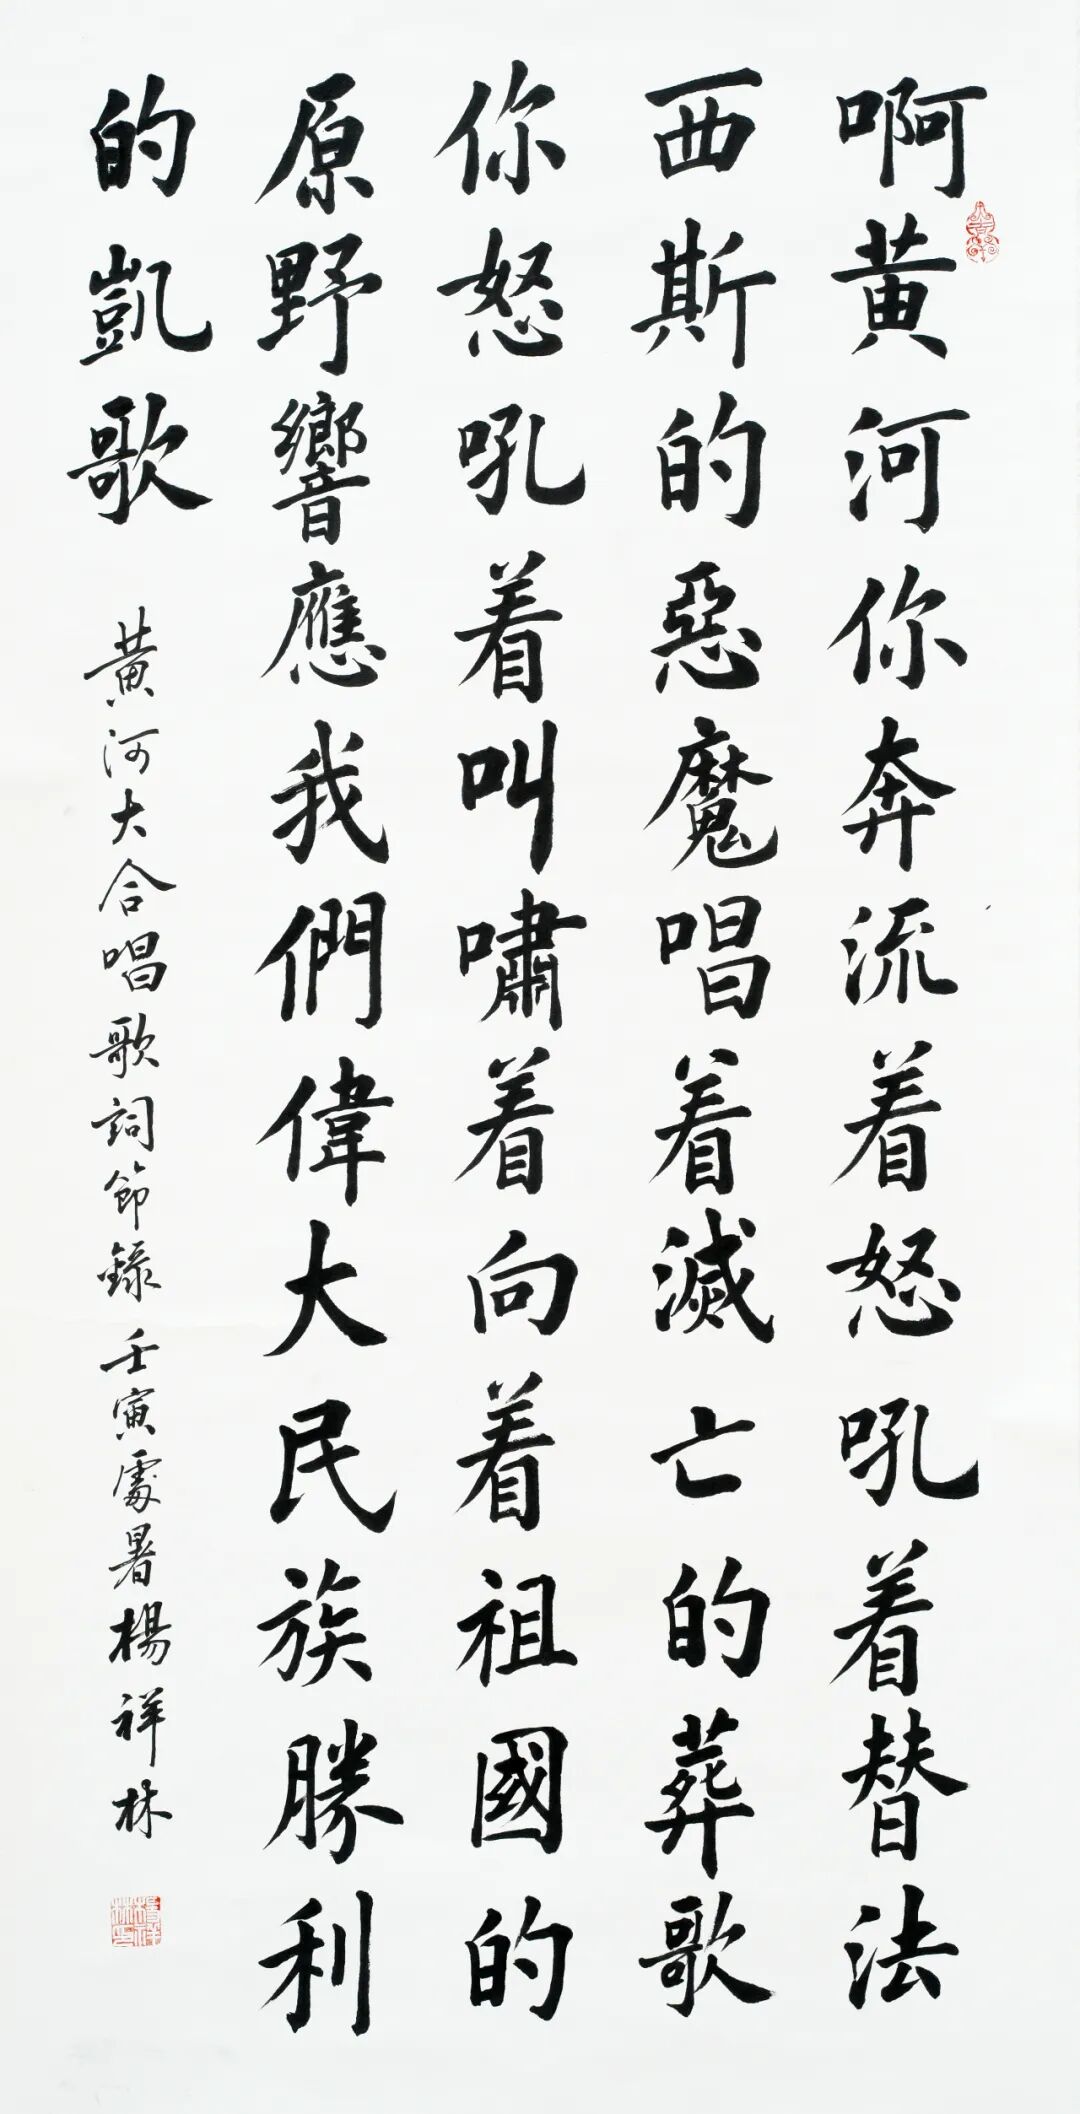 啊黄河你奔流着怒吼着替法
西斯的惡魔唱着滅亡的葬歌
你怒吼着叫嘯着向着祖國的
原野響應我們偉大民族勝利
的凱歌
黄河大合唱歌詞節錄 壬寅處暑楊祥林
楊祥林印